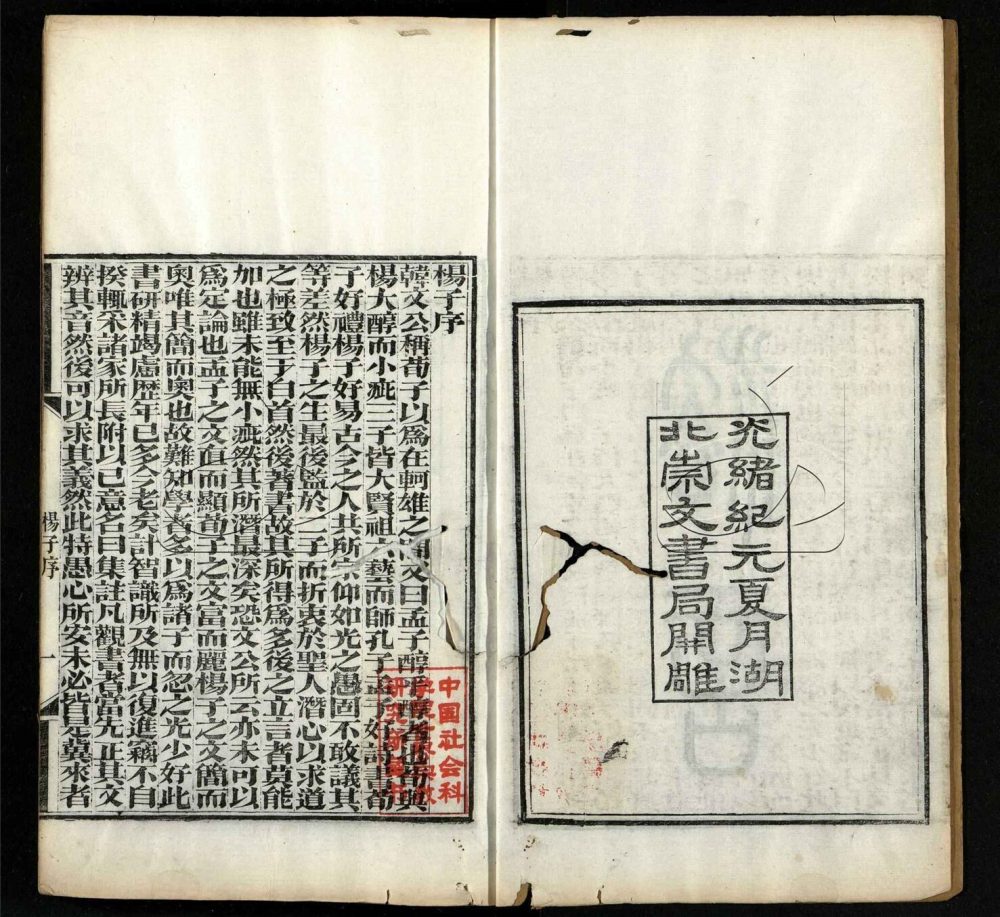 光緒紀元夏月湖
北崇文書局開雕
楊子序
韓文公稱荀子以爲在軻雄之間又曰孟子醇乎醇者也荀與
楊大醇而小疵三子皆大賢祖六藝而師孔子孟子好詩書荀
子好禮楊子好易古今之人共所宗仰如光之愚固不敢議其
等差然楊子之生最後監於二子而折衷於聖人潛心以求道
之極致至于白首然後著書故其所得爲多後之立言者莫能
加也雖未能無小疵然其所潛最深矣恐文公所云亦未可以
爲定論也孟子之文直而顯荀子之文富而麗楊子之文簡而
奧唯其簡而奧也故難知學者多以爲諸子而忽之光少好此
書研精竭慮歷年已多今老矣計智識所及無以復進竊不自
揆輒采諸家所長附以己意名曰集註凡觀書者當先正其文
辨其音然後可以求其義然此特愚心所安未必皆是冀來者
楊子序 一
中國社会科